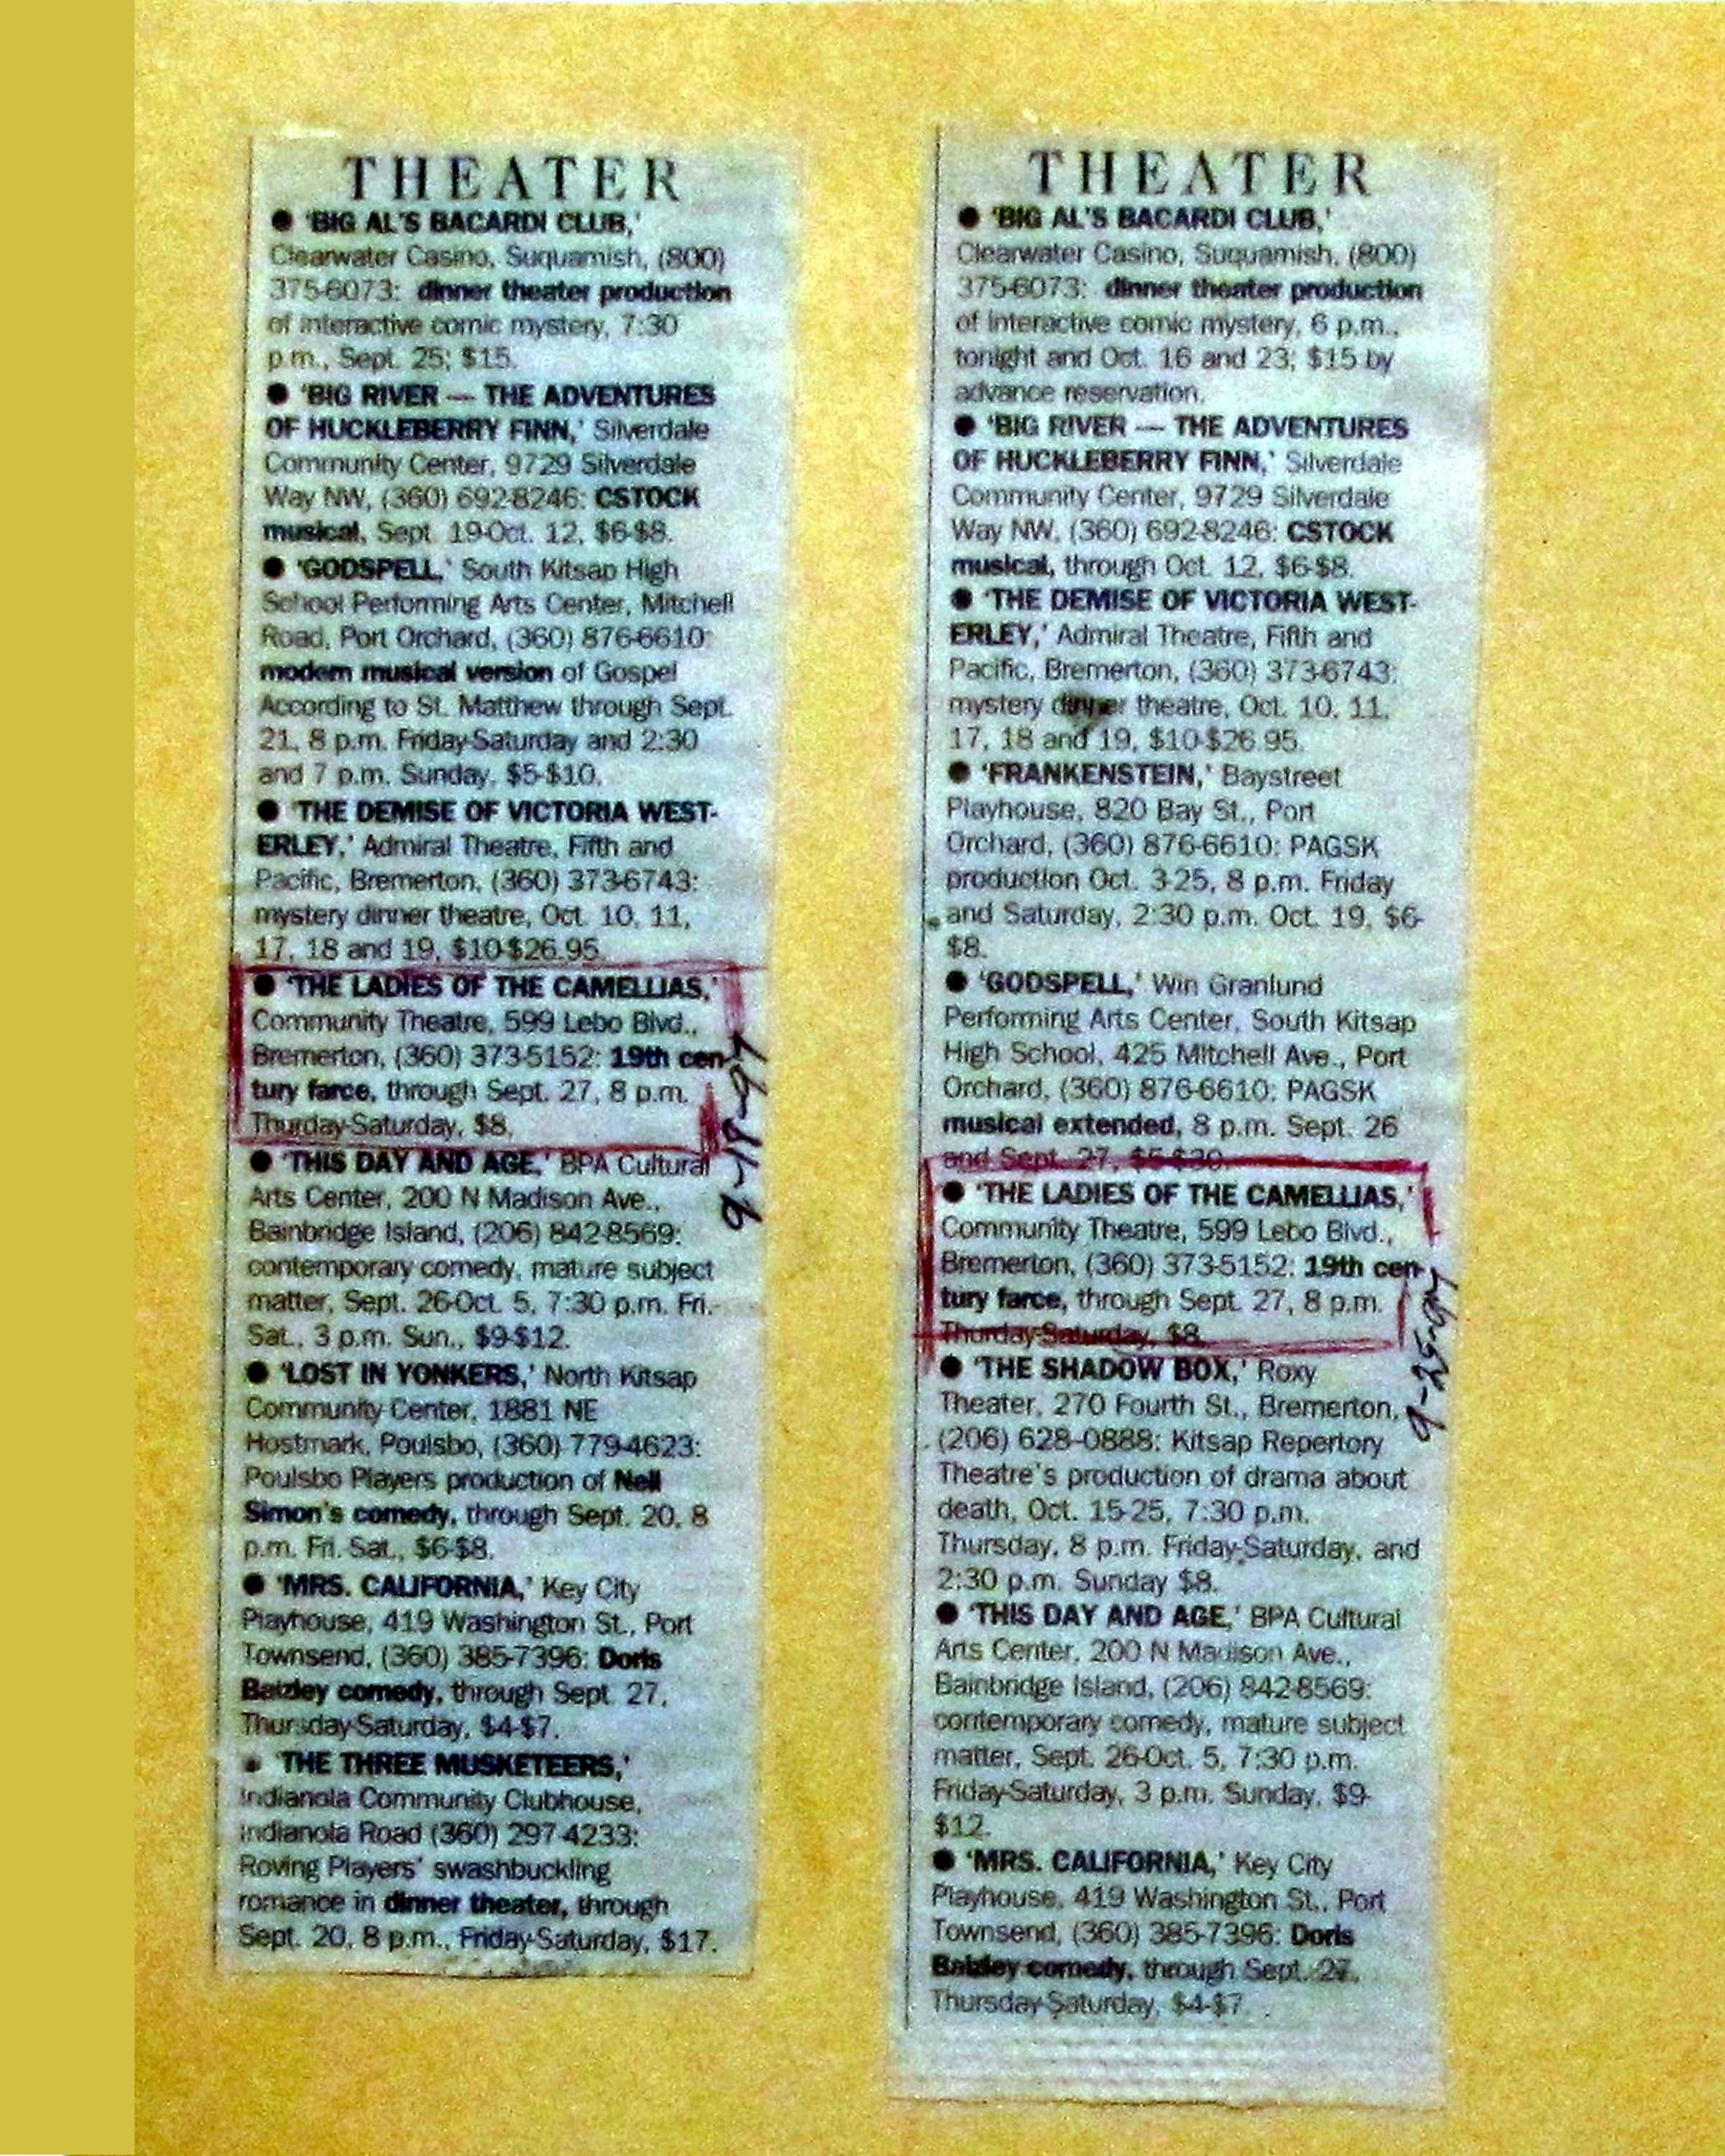 THEATER
● 'BIG AL'S BACARDI CLUB,'
Clearwater Casino, Suquamish, (800)
375-6073: dinner theater production
of interactive comic mystery, 7:30
p.m., Sept. 25; $15.
● 'BIG RIVER — THE ADVENTURES
OF HUCKLEBERRY FINN,' Silverdale
Community Center, 9729 Silverdale
Way NW, (360) 692-8246: CSTOCK
musical, Sept. 19-Oct. 12, $6-$8.
● 'GODSPELL,' South Kitsap High
School Performing Arts Center, Mitchell
Road, Port Orchard, (360) 876-6610:
modern musical version of Gospel
According to St. Matthew through Sept.
21, 8 p.m. Friday-Saturday and 2:30
and 7 p.m. Sunday, $5-$10.
● 'THE DEMISE OF VICTORIA WEST-
ERLEY,' Admiral Theatre, Fifth and
Pacific, Bremerton, (360) 373-6743:
mystery dinner theatre, Oct. 10, 11,
17, 18 and 19, $10-$26.95.
● 'THE LADIES OF THE CAMELLIAS,'
Community Theatre, 599 Lebo Blvd.,
Bremerton, (360) 373-5152: 19th cen-
tury farce, through Sept. 27, 8 p.m.
Thurday-Saturday, $8.
9-18-97
● 'THIS DAY AND AGE,' BPA Cultural
Arts Center, 200 N Madison Ave.,
Bainbridge Island, (206) 842-8569:
contemporary comedy, mature subject
matter, Sept. 26-Oct. 5, 7:30 p.m. Fri.-
Sat., 3 p.m. Sun., $9-$12.
● 'LOST IN YONKERS,' North Kitsap
Community Center, 1881 NE
Hostmark, Poulsbo, (360) 779-4623:
Poulsbo Players production of Neil
Simon's comedy, through Sept. 20, 8
p.m. Fri. Sat., $6-$8.
● 'MRS. CALIFORNIA,' Key City
Playhouse, 419 Washington St., Port
Townsend, (360) 385-7396: Doris
Baizley comedy, through Sept. 27,
Thursday-Saturday, $4-$7.
● 'THE THREE MUSKETEERS,'
Indianola Community Clubhouse,
Indianola Road (360) 297-4233:
Roving Players' swashbuckling
romance in dinner theater, through
Sept. 20, 8 p.m., Friday-Saturday, $17.
THEATER
● 'BIG AL'S BACARDI CLUB,'
Clearwater Casino, Suquamish, (800)
375-6073: dinner theater production
of interactive comic mystery, 6 p.m.,
tonight and Oct. 16 and 23; $15 by
advance reservation.
● 'BIG RIVER — THE ADVENTURES
OF HUCKLEBERRY FINN,' Silverdale
Community Center, 9729 Silverdale
Way NW, (360) 692-8246: CSTOCK
musical, through Oct. 12, $6-$8.
● 'THE DEMISE OF VICTORIA WEST-
ERLEY,' Admiral Theatre, Fifth and
Pacific, Bremerton, (360) 373-6743:
mystery dinner theatre, Oct. 10, 11,
17, 18 and 19, $10-$26.95.
● 'FRANKENSTEIN,' Baystreet
Playhouse, 820 Bay St., Port
Orchard, (360) 876-6610: PAGSK
production Oct. 3-25, 8 p.m. Friday
and Saturday, 2:30 p.m. Oct. 19, $6-
$8.
● 'GODSPELL,' Win Granlund
Performing Arts Center, South Kitsap
High School, 425 Mitchell Ave., Port
Orchard, (360) 876-6610: PAGSK
musical extended, 8 p.m. Sept. 26
and Sept. 27, $5-$30.
● 'THE LADIES OF THE CAMELLIAS,'
Community Theatre, 599 Lebo Blvd.,
Bremerton, (360) 373-5152: 19th cen-
tury farce, through Sept. 27, 8 p.m.
Thurday-Saturday, $8.
9-25-97
● 'THE SHADOW BOX,' Roxy
Theater, 270 Fourth St., Bremerton,
(206) 628-0888: Kitsap Repertory
Theatre's production of drama about
death, Oct. 15-25, 7:30 p.m.
Thursday, 8 p.m. Friday-Saturday, and
2:30 p.m. Sunday $8.
● 'THIS DAY AND AGE,' BPA Cultural
Arts Center, 200 N Madison Ave.,
Bainbridge Island, (206) 842-8569:
contemporary comedy, mature subject
matter, Sept. 26-Oct. 5, 7:30 p.m.
Friday-Saturday, 3 p.m. Sunday, $9-
$12.
● 'MRS. CALIFORNIA,' Key City
Playhouse, 419 Washington St., Port
Townsend, (360) 385-7396: Doris
Baizley comedy, through Sept. 27,
Thursday-Saturday, $4-$7.